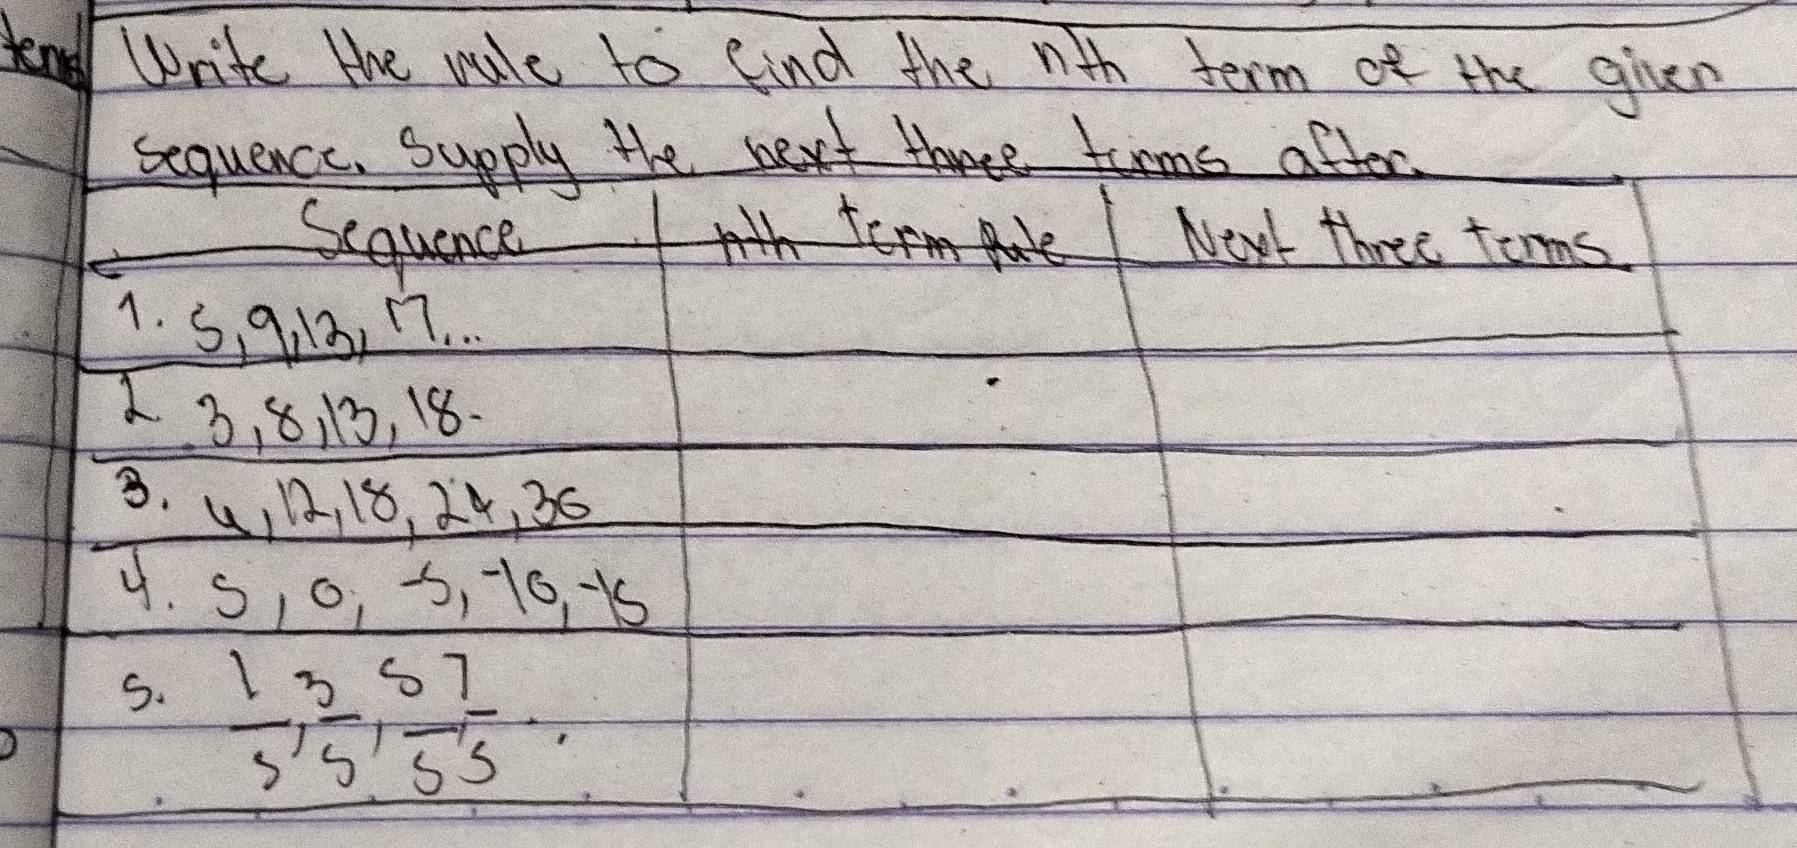 Write the rule to find the nth term of the given
sequence. Supply the next three terms after.
Sequence nth term Rule Next three terms
1. 5, 9, 13, 17...
2 3, 8, 13, 18.
3. 4, 12, 18, 24, 36
4. 5, 0, -5, -10, -15
5. 1/5, 3/5, 5/5, 7/5.